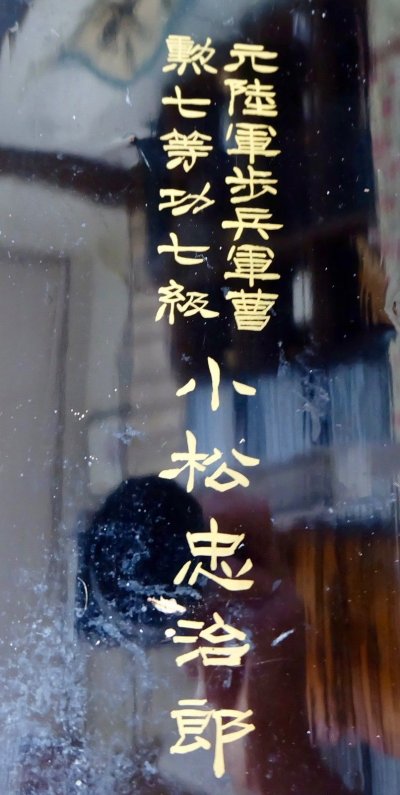 元陸軍歩兵軍曹
勲七等功七級
小松忠治郎